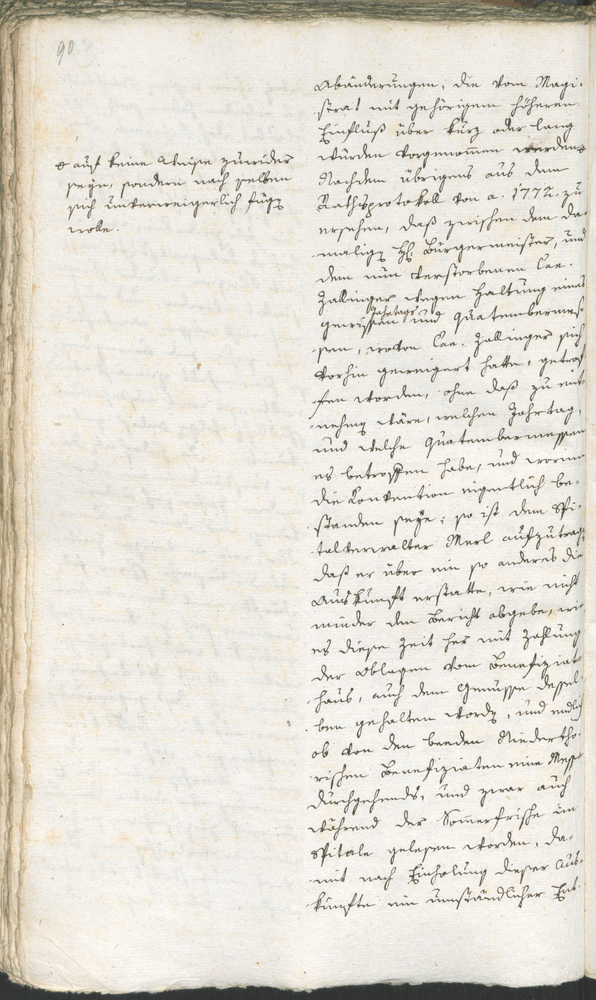 90
auf keine Weise zuwider
seyn, sondern nach selben
sich unverweigerlich fügen
wolle.
Abänderungen, die vom Magi-
strat mit gehörigem höheren
Einfluß über kurz oder lang
würden vorgenommen werden
Nachdem übrigens aus dem
Rathsprotokoll von a. 1772. zu
ersehen, daß zwischen dem da-
malig H: Bürgermeister, und
dem nun verstorbenen Cae.
Zallinger wegen Haltung eines
Jahrtags
gewissen und Quatembermes-
sen, wovon Cae. Zallinger sich
vorhin geweigert hatte, getrof-
fen worden, ohne daß zu ent-
nehmen wäre, welchen Jahrtag,
und welche Quatembermessen
es betroffen habe, und worinn
die Konvention eigentlich be-
standen seye; so ist dem Spi-
talverwalter Merl aufzutragen
daß er über ein so anderes die
Auskunft erstatte, wie nicht
minder den Bericht abgebe, wie
es diese Zeit her mit Zahlung
der Oblagen vom Benefiziat-
haus, auch dem Genusse dessel-
ben gehalten worden, und endlich
ob von den beeden Niedertho-
rischen Benefiziaten eine Messe
durchgehends, und zwar auch
während der Sommerfrische im
Spitale gelesen worden, da-
mit nach Einholung dieser Aus-
künfte ein umständlicher Ent-